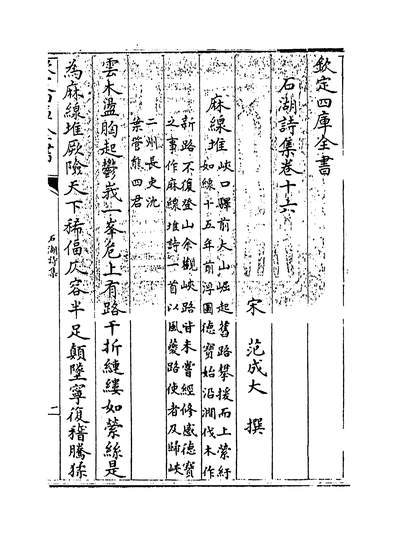 欽定四庫全書
石湖詩集卷十六
宋 范成大 撰
麻線堆 峽口驛前大山崛起舊路攀援而上縈紆
如線十五年前浮圖德寶始沿澗伐木作
新路不復登山余觀峽路甘未嘗經修感德寶
之事作麻線堆詩一首以風夔路使者及歸峽
二州長吏沈
葉管熊四君
雲木盪胸起鬱峩一峯危上有路千折縺縷如縈絲是
為麻線堆厥險天下稀偪仄容半足顛墜寧復稽騰猱
石湖詩集
二